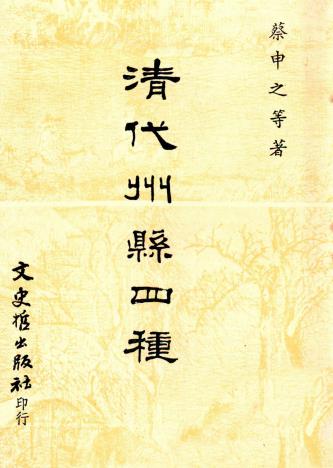 蔡申之等著
清代州縣四種
文史哲出版社印行